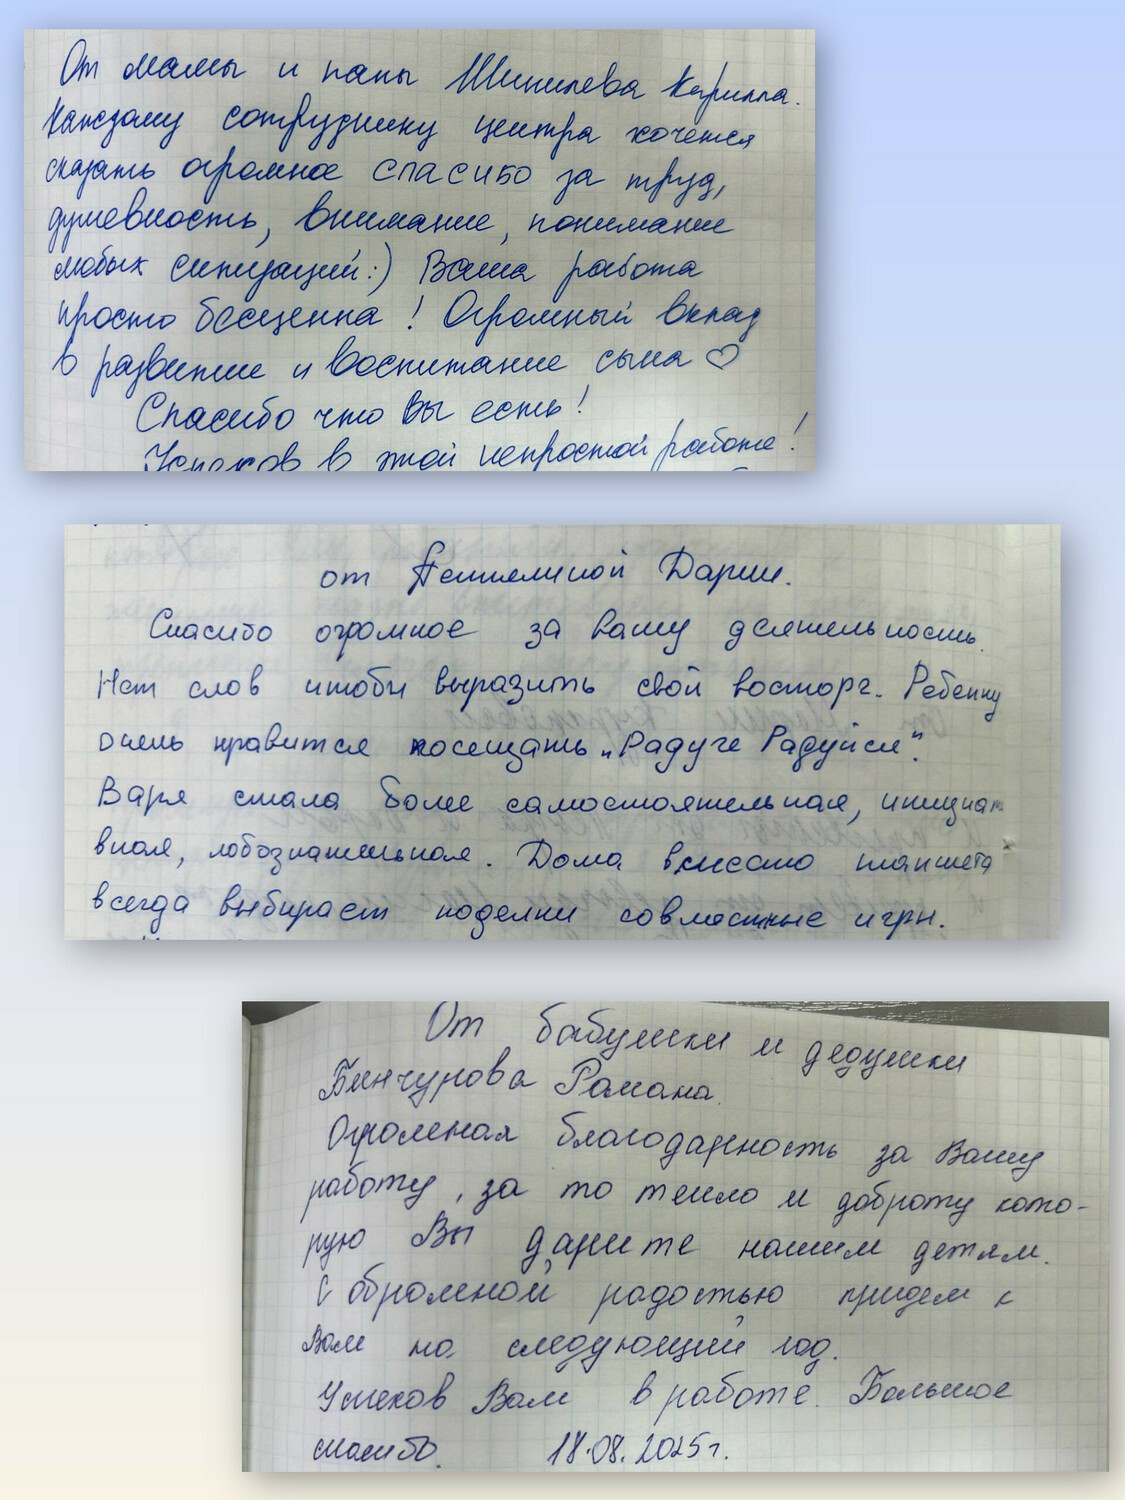 От мамы и папы Шипилева Кирилла.
Каждому сотруднику центра хочется
сказать огромное СПАСИБО за труд,
душевность, внимание, понимание
любых ситуаций:) Ваша работа
просто бесценна! Огромный вклад
в развитие и воспитание сына ♡
Спасибо что вы есть!
Успехов в этой непростой работе!
от Дарии.
Спасибо огромное за вашу деятельность.
Нет слов чтобы выразить свой восторг. Ребенку
очень нравится посещать „Радуге Радуйся".
Варя стала более самостоятельная, инициати
вная, лобознательная. Дома вместо планшета
всегда выбирает поделки совместные игры.
От бабушки и дедушки
Бинчурова Романа.
Огромная благодарность за Вашу
работу, за то тепло и доброту кото-
рую Вы дарите нашим детям.
С огромной радостью придем к
Вам на следующий год.
Успехов Вам в работе. Большое
спасибо. 18.08.2025г.